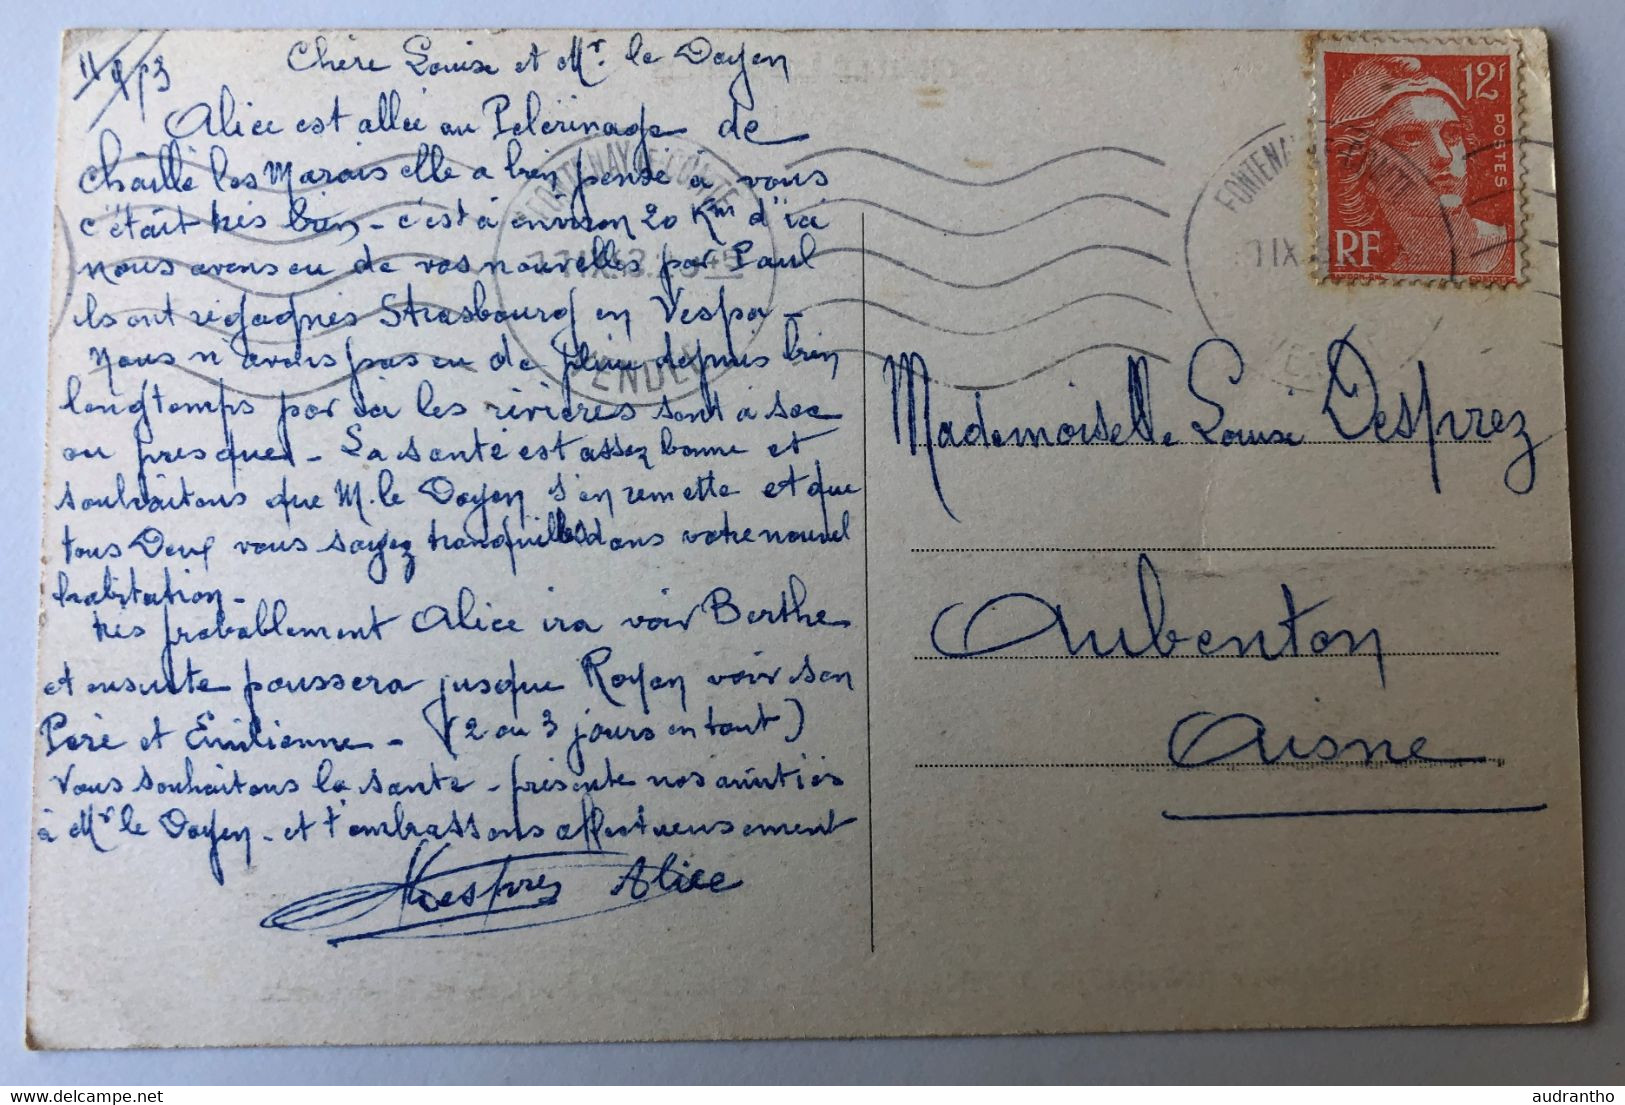 11/9/53
Chère Louise et Mr. le Doyen
Alice est allée au Pelérinage de
Chaillé les Marais elle a bien pensé à vous
c'était très bien - c'est à environ 20 Km d'ici
nous avons eu de vos nouvelles par Paul
ils ont régagnés Strasbourg en Vespa -
Nous n'avons pas eu de pluie depuis bien
longtemps par ici les rivières sont à sec
ou presque - La santé est assez bonne et
souhaitons que M. le Doyen s'en remette et que
tous Deux vous soyez tranquilles dans votre nouvel
habitation -
très probablement Alice ira voir Berthe
et ensuite poussera jusque Royan voir son
Père et Emilienne - (2 ou 3 jours en tout)
Vous souhaitons la santé - présente nos amitiés
à Mr le Doyen - et t'embrassons affectueusement
Desprez Alice
12f
POSTES
RF
FONTENAY LE COMTE
VENDEE
Mademoiselle Louise Desprez
Aubenton
Aisne
delcampe.net
audrantho